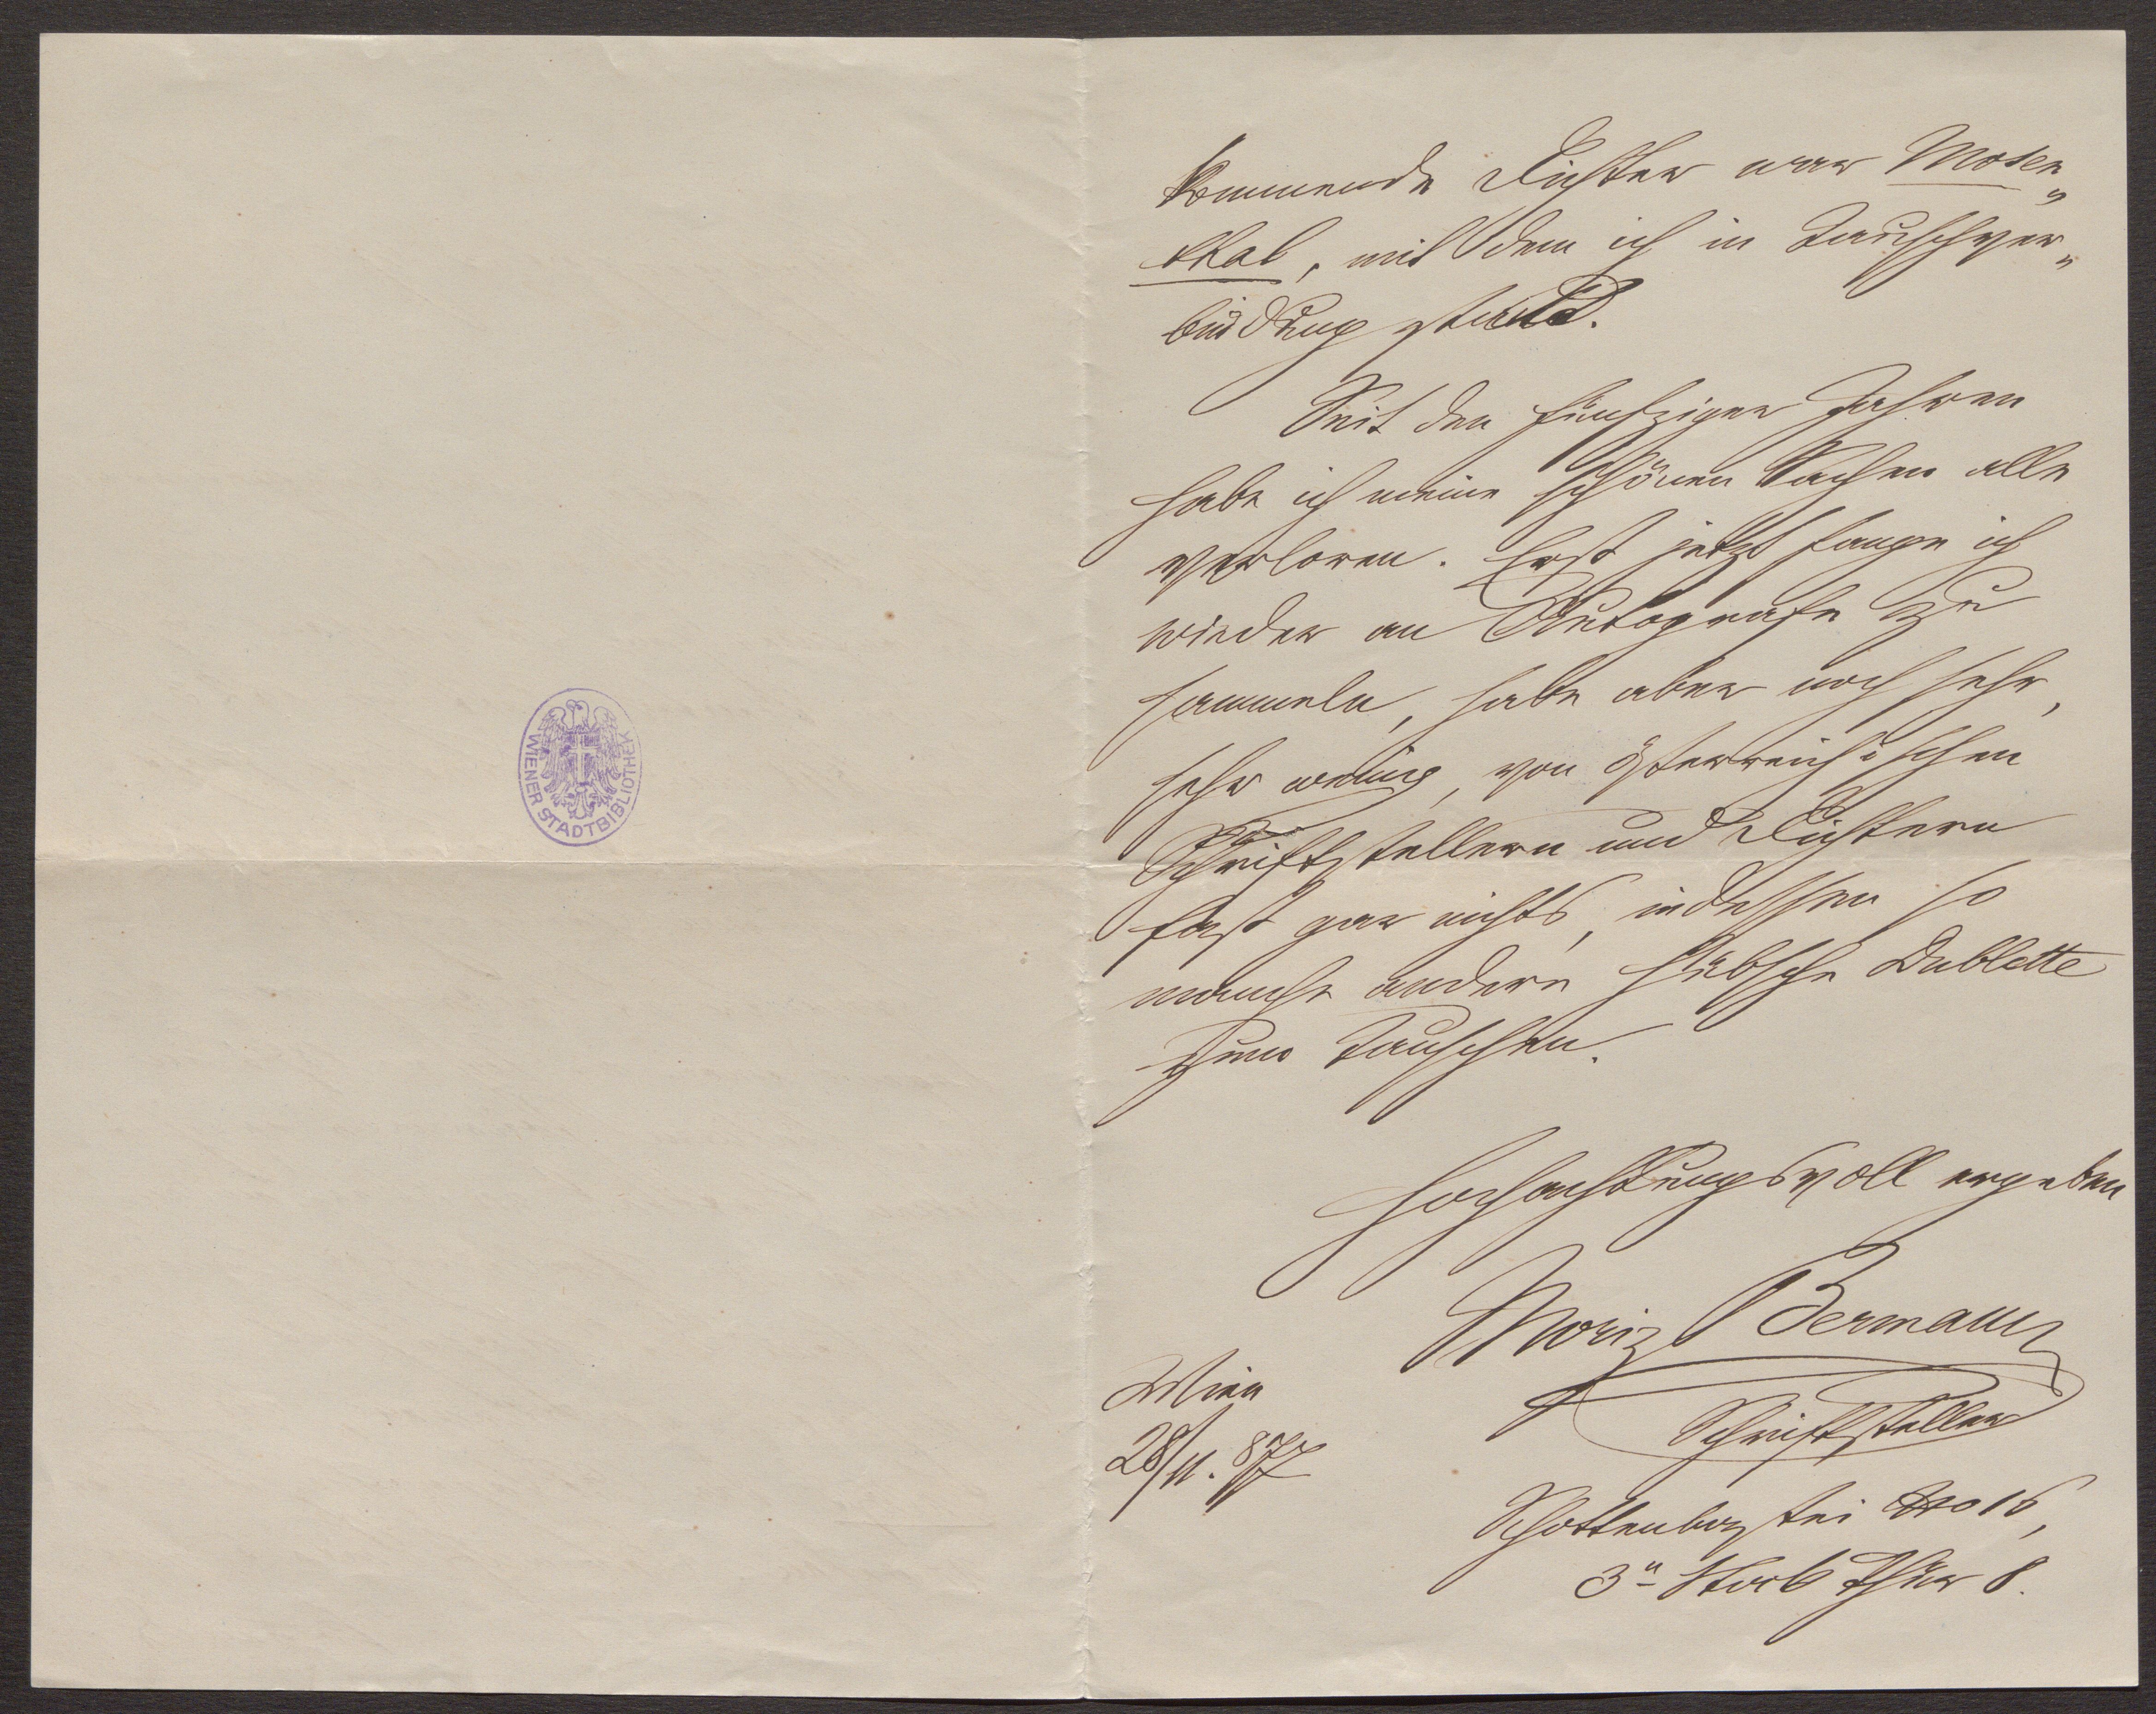 WIENER STADTBIBLIOTHEK
kommende Dichter war Mosen„
thal, mit dem ich in Tauschver„
bindung stand.
Seit den fünfziger Jahren
habe ich meine schönen Sachen alle
verloren. Erst jetzt fange ich
wieder an Autografe zu
sammeln, habe aber noch sehr,
sehr wenig, von österreichischen
Schriftstellern und Dichtern
fast gar nichts, indessen so
manche andere hübsche Dublette
zum Tauschen.
Hochachtungsvoll ergeben
Moriz Bermann
Schriftsteller
Wien
28/11. 877
Schottenbastei No 16,
3n Stock Thür 8.